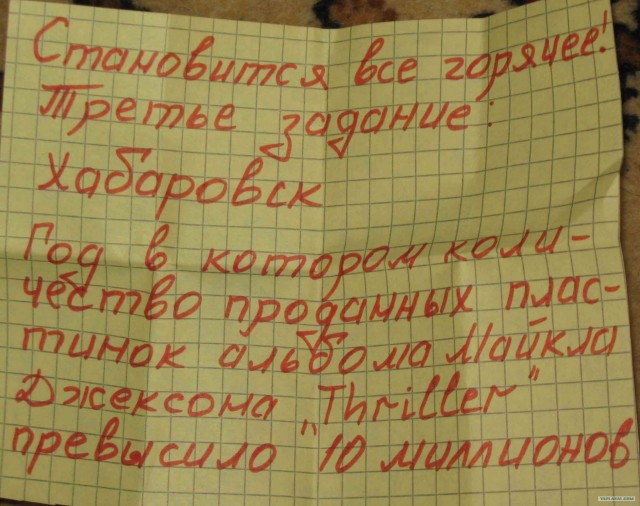 Становится все горячее!
Третье задание:
Хабаровск
Год в котором коли-
чество проданных плас-
тинок альбома Майкла
Джексона „Thriller"
превысило 10 миллионов